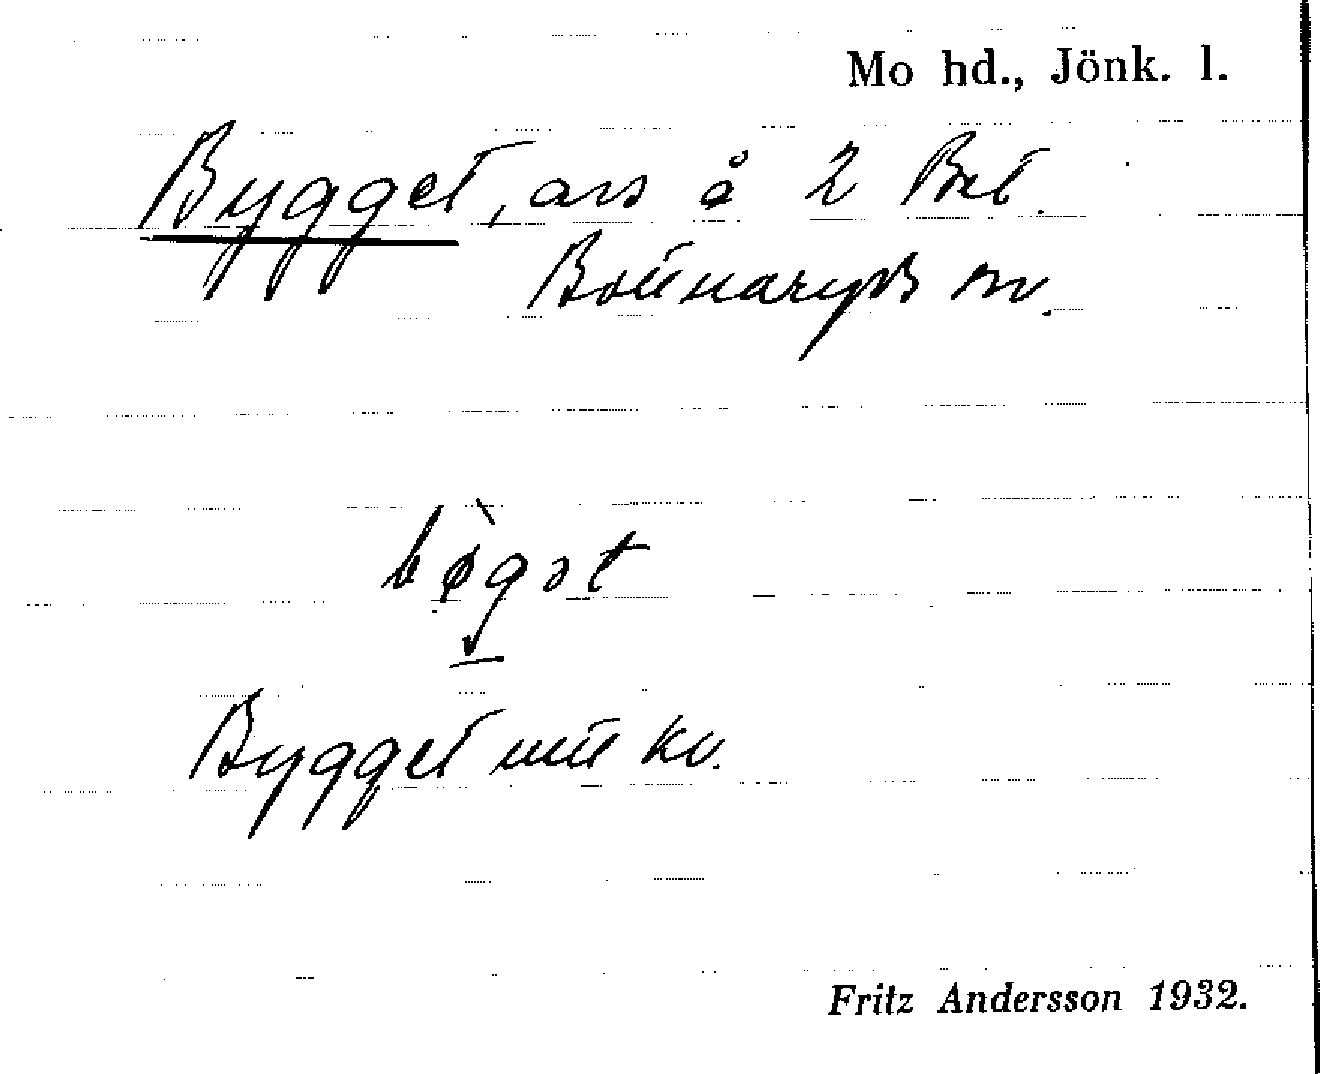 Mo hd., Jönk. l.
Bygget, avs å 2 Bnt.
Bottnaryds sn.
bøgət
Bygget intill kv.
Fritz Andersson 1932.